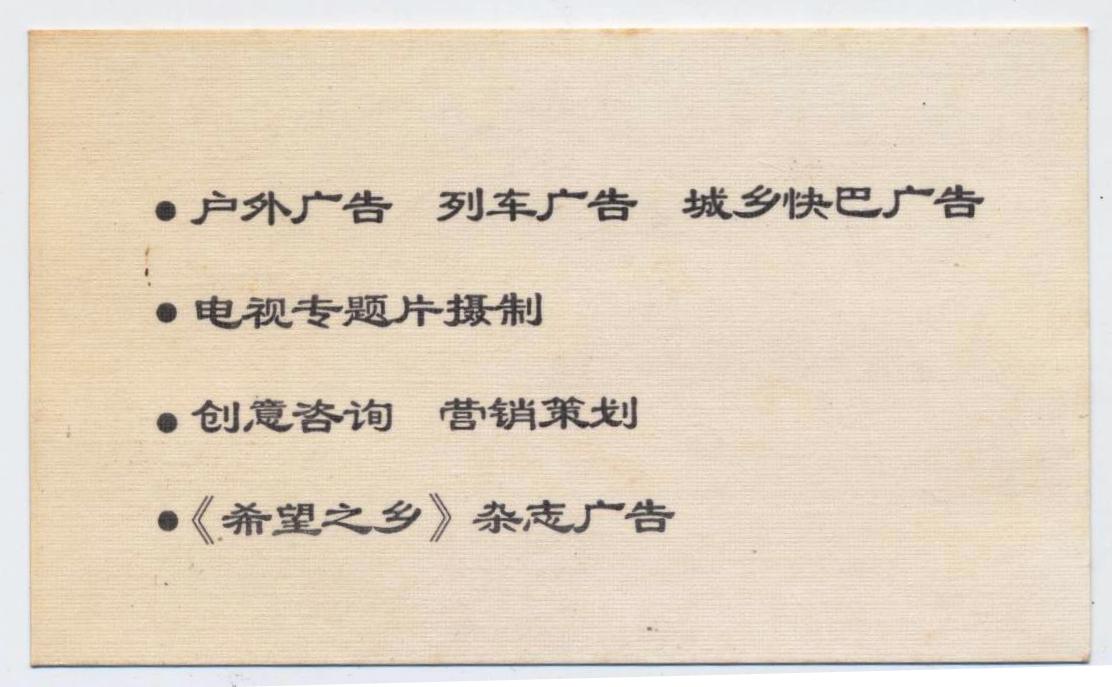 ●户外广告 列车广告 城乡快巴广告
●电视专题片摄制
●创意咨询 营销策划
●《希望之乡》杂志广告